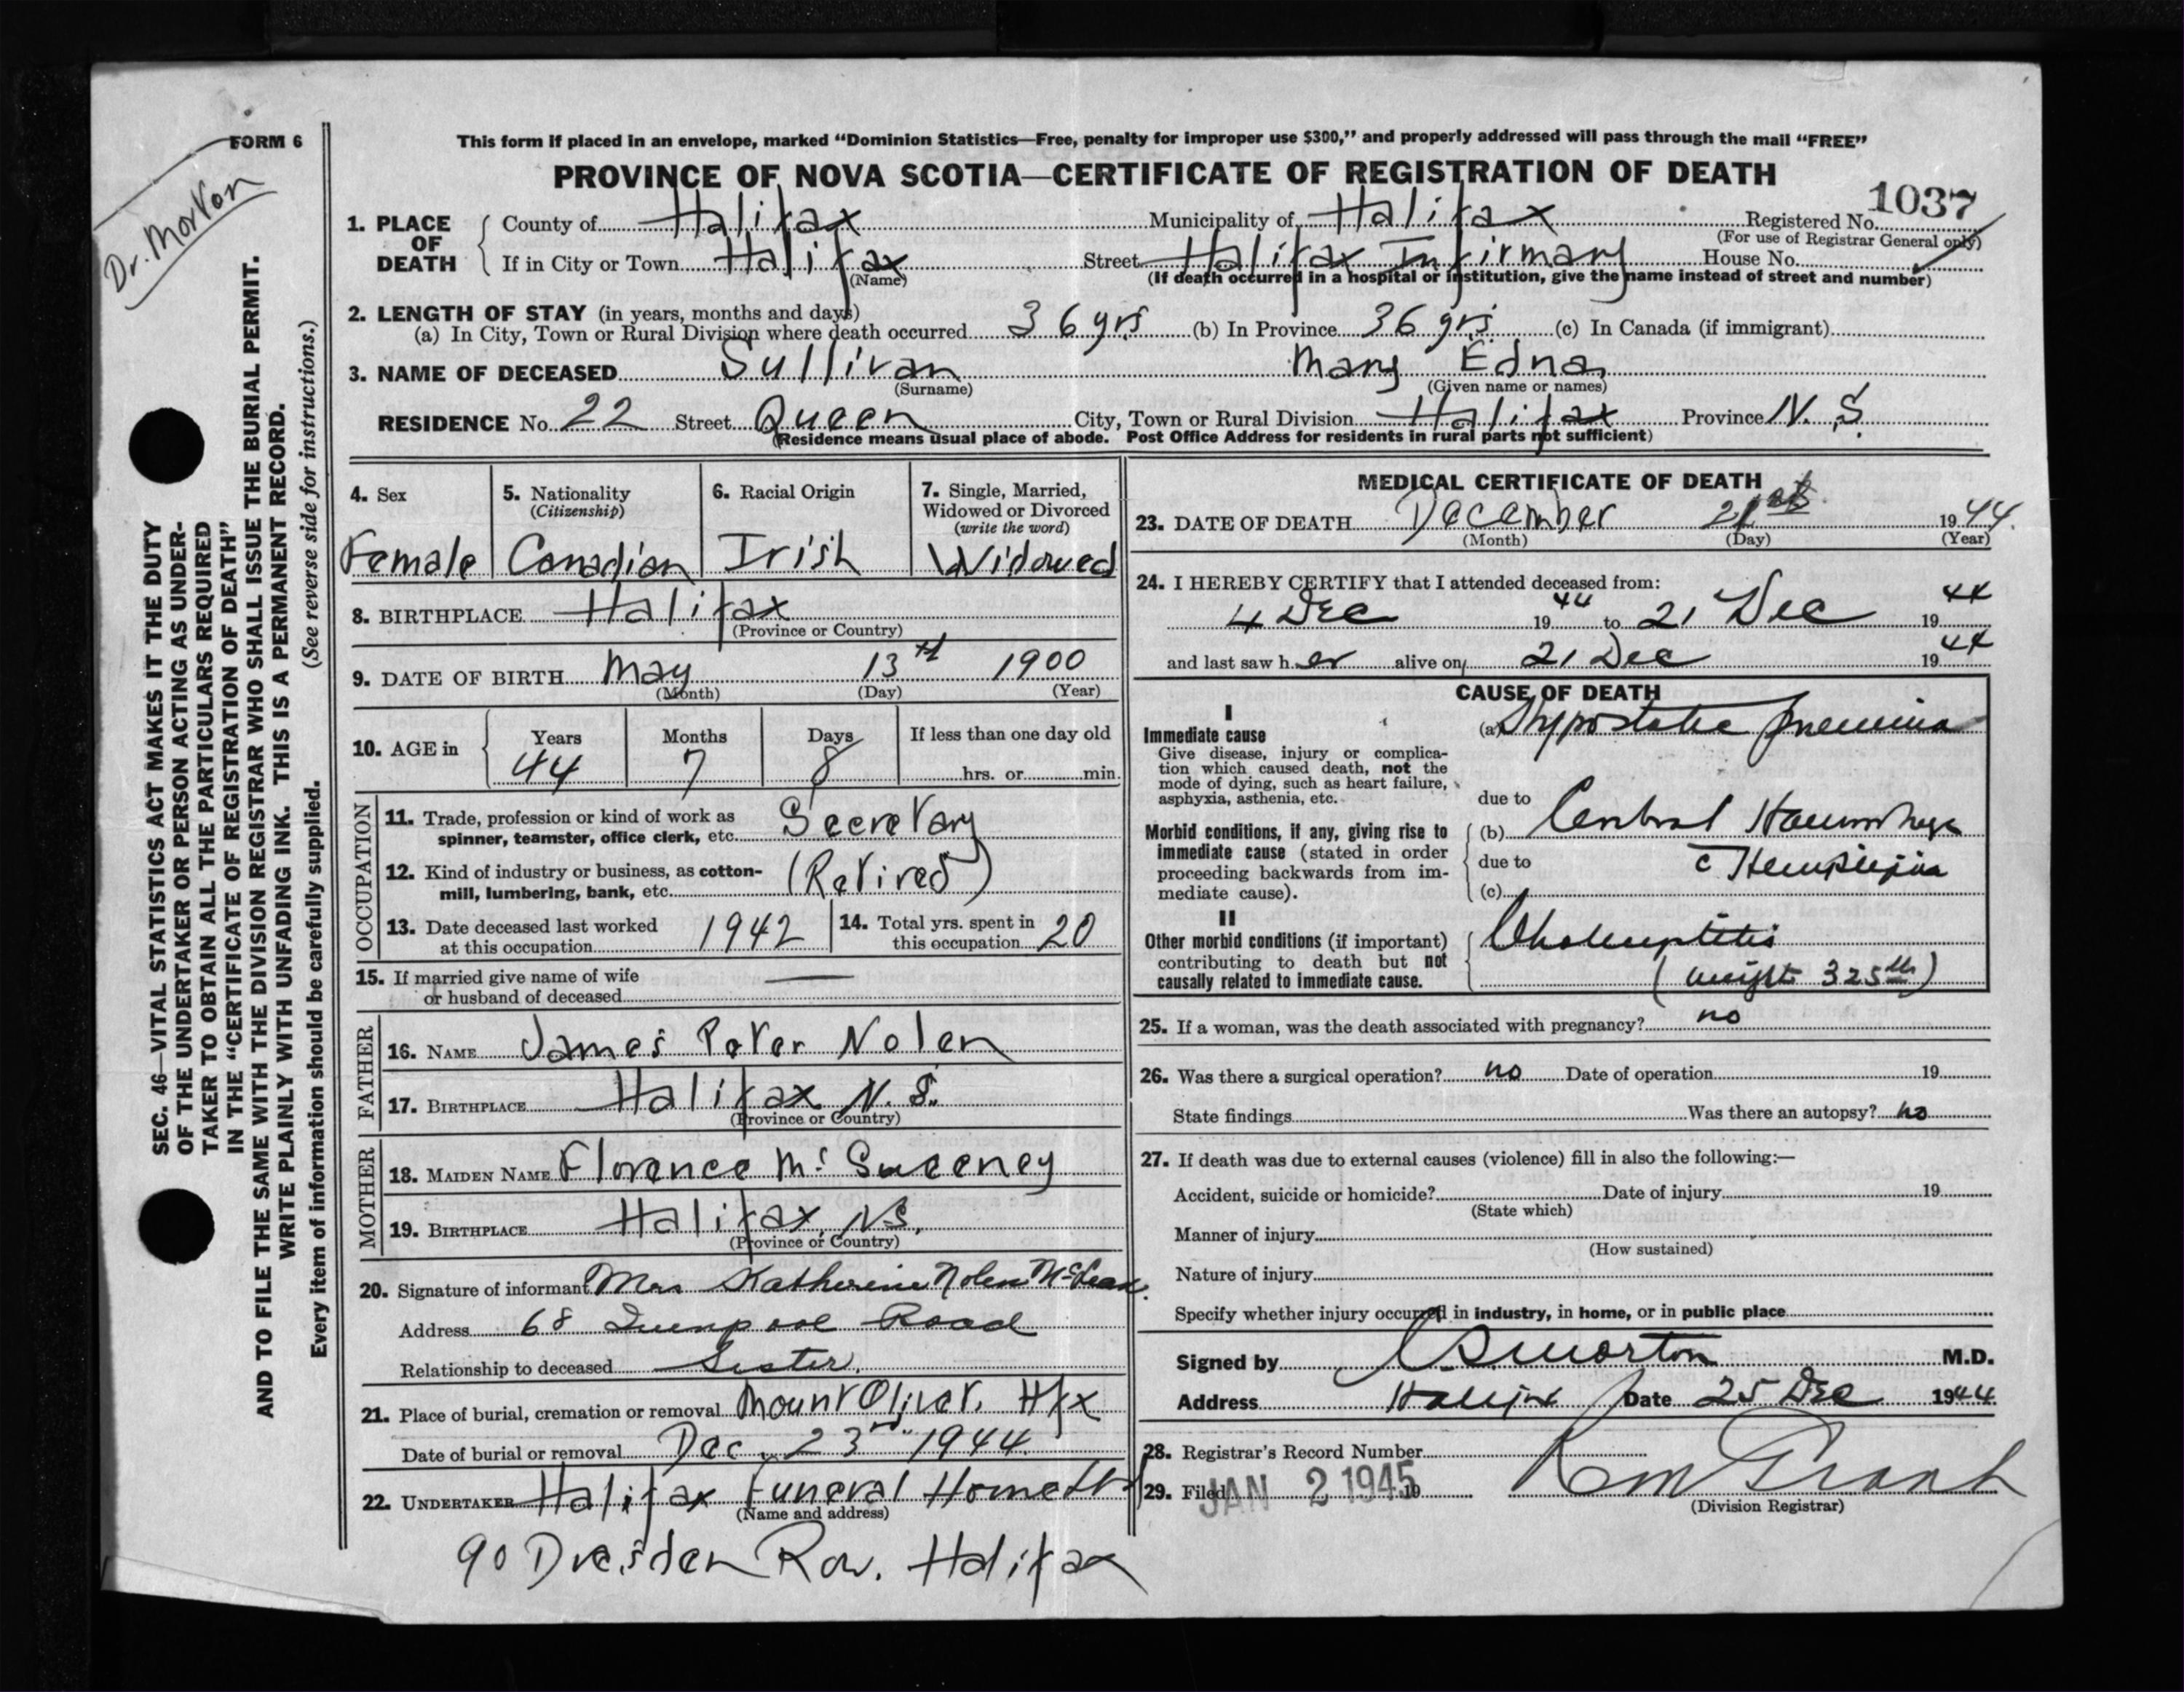 FORM 6
Dr. Morton
This form if placed in an envelope, marked "Dominion Statistics—Free, penalty for improper use $300," and properly addressed will pass through the mail "FREE"
PROVINCE OF NOVA SCOTIA—CERTIFICATE OF REGISTRATION OF DEATH
1037
1. PLACE OF DEATH County of Halifax Municipality of Halifax Registered No.
(For use of Registrar General only)
If in City or Town Halifax Street Halifax Infirmary House No.
(Name) (If death occurred in a hospital or institution, give the name instead of street and number)
2. LENGTH OF STAY (in years, months and days)
(a) In City, Town or Rural Division where death occurred 36 yrs (b) In Province 36 yrs (c) In Canada (if immigrant)
3. NAME OF DECEASED Sullivan Mary Edna
(Surname) (Given name or names)
RESIDENCE No. 22 Street Queen City, Town or Rural Division Halifax Province N. S.
(Residence means usual place of abode. Post Office Address for residents in rural parts not sufficient)
4. Sex
Female
5. Nationality
(Citizenship)
Canadian
6. Racial Origin
Irish
7. Single, Married,
Widowed or Divorced
(write the word)
Widowed
8. BIRTHPLACE Halifax
(Province or Country)
9. DATE OF BIRTH May 13th 1900
(Month) (Day) (Year)
10. AGE in Years Months Days If less than one day old
44 7 8 hrs. or min.
OCCUPATION
11. Trade, profession or kind of work as
spinner, teamster, office clerk, etc. Secretary
12. Kind of industry or business, as cotton-
mill, lumbering, bank, etc. (Retired)
13. Date deceased last worked
at this occupation 1942
14. Total yrs. spent in
this occupation 20
15. If married give name of wife
or husband of deceased —
FATHER
16. NAME James Peter Nolen
17. BIRTHPLACE Halifax N. S.
(Province or Country)
MOTHER
18. MAIDEN NAME Florence Mc Sweeney
19. BIRTHPLACE Halifax, N.S.
(Province or Country)
20. Signature of informant Mrs Katherine Nolen
Address 68 Quinpool Road
Relationship to deceased Sister.
21. Place of burial, cremation or removal Mount Olivet, Hfx
Date of burial or removal Dec. 23rd 1944
22. UNDERTAKER Halifax Funeral Home
(Name and address)
90 Dresden Row. Halifax
MEDICAL CERTIFICATE OF DEATH
23. DATE OF DEATH December 21st 1944.
(Month) (Day) (Year)
24. I HEREBY CERTIFY that I attended deceased from:
4 Dec 1944 to 21 Dec 1944
and last saw her alive on 21 Dec 1944
CAUSE OF DEATH
I
Immediate cause
Give disease, injury or complica-
tion which caused death, not the
mode of dying, such as heart failure,
asphyxia, asthenia, etc.
(a) Hypostatic
due to
Morbid conditions, if any, giving rise to
immediate cause (stated in order
proceeding backwards from im-
mediate cause).
(b)
due to
(c)
II
Other morbid conditions (if important)
contributing to death but not
causally related to immediate cause.
(weight 325 lbs)
25. If a woman, was the death associated with pregnancy? no
26. Was there a surgical operation? no Date of operation 19
State findings Was there an autopsy? no
27. If death was due to external causes (violence) fill in also the following:—
Accident, suicide or homicide? Date of injury 19
(State which)
Manner of injury
(How sustained)
Nature of injury
Specify whether injury occurred in industry, in home, or in public place
Signed by Morton M.D.
Address Halifax Date 25 Dec 1944
28. Registrar's Record Number
29. Filed JAN 2 1945 19
(Division Registrar)
SEC. 46—VITAL STATISTICS ACT MAKES IT THE DUTY
OF THE UNDERTAKER OR PERSON ACTING AS UNDER-
TAKER TO OBTAIN ALL THE PARTICULARS REQUIRED
IN THE "CERTIFICATE OF REGISTRATION OF DEATH"
AND TO FILE THE SAME WITH THE DIVISION REGISTRAR WHO SHALL ISSUE THE BURIAL PERMIT.
WRITE PLAINLY WITH UNFADING INK. THIS IS A PERMANENT RECORD.
Every item of information should be carefully supplied. (See reverse side for instructions.)